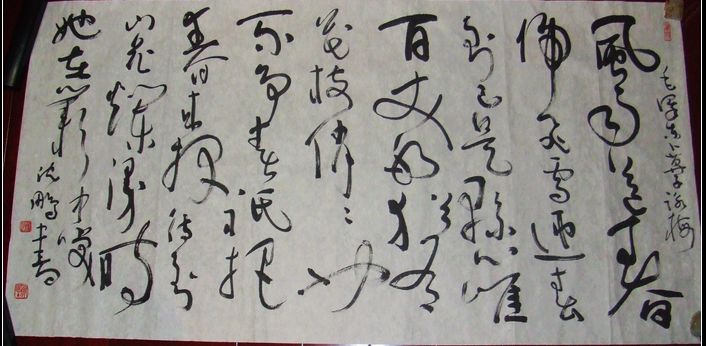 毛泽东卜算子咏梅
風雨送春
归飞雪迎春
到已是懸崖
百丈冰犹有
花枝俏〻也
不争春只把
春来报待到
山花爛漫時
她在叢中笑
沈鹏书